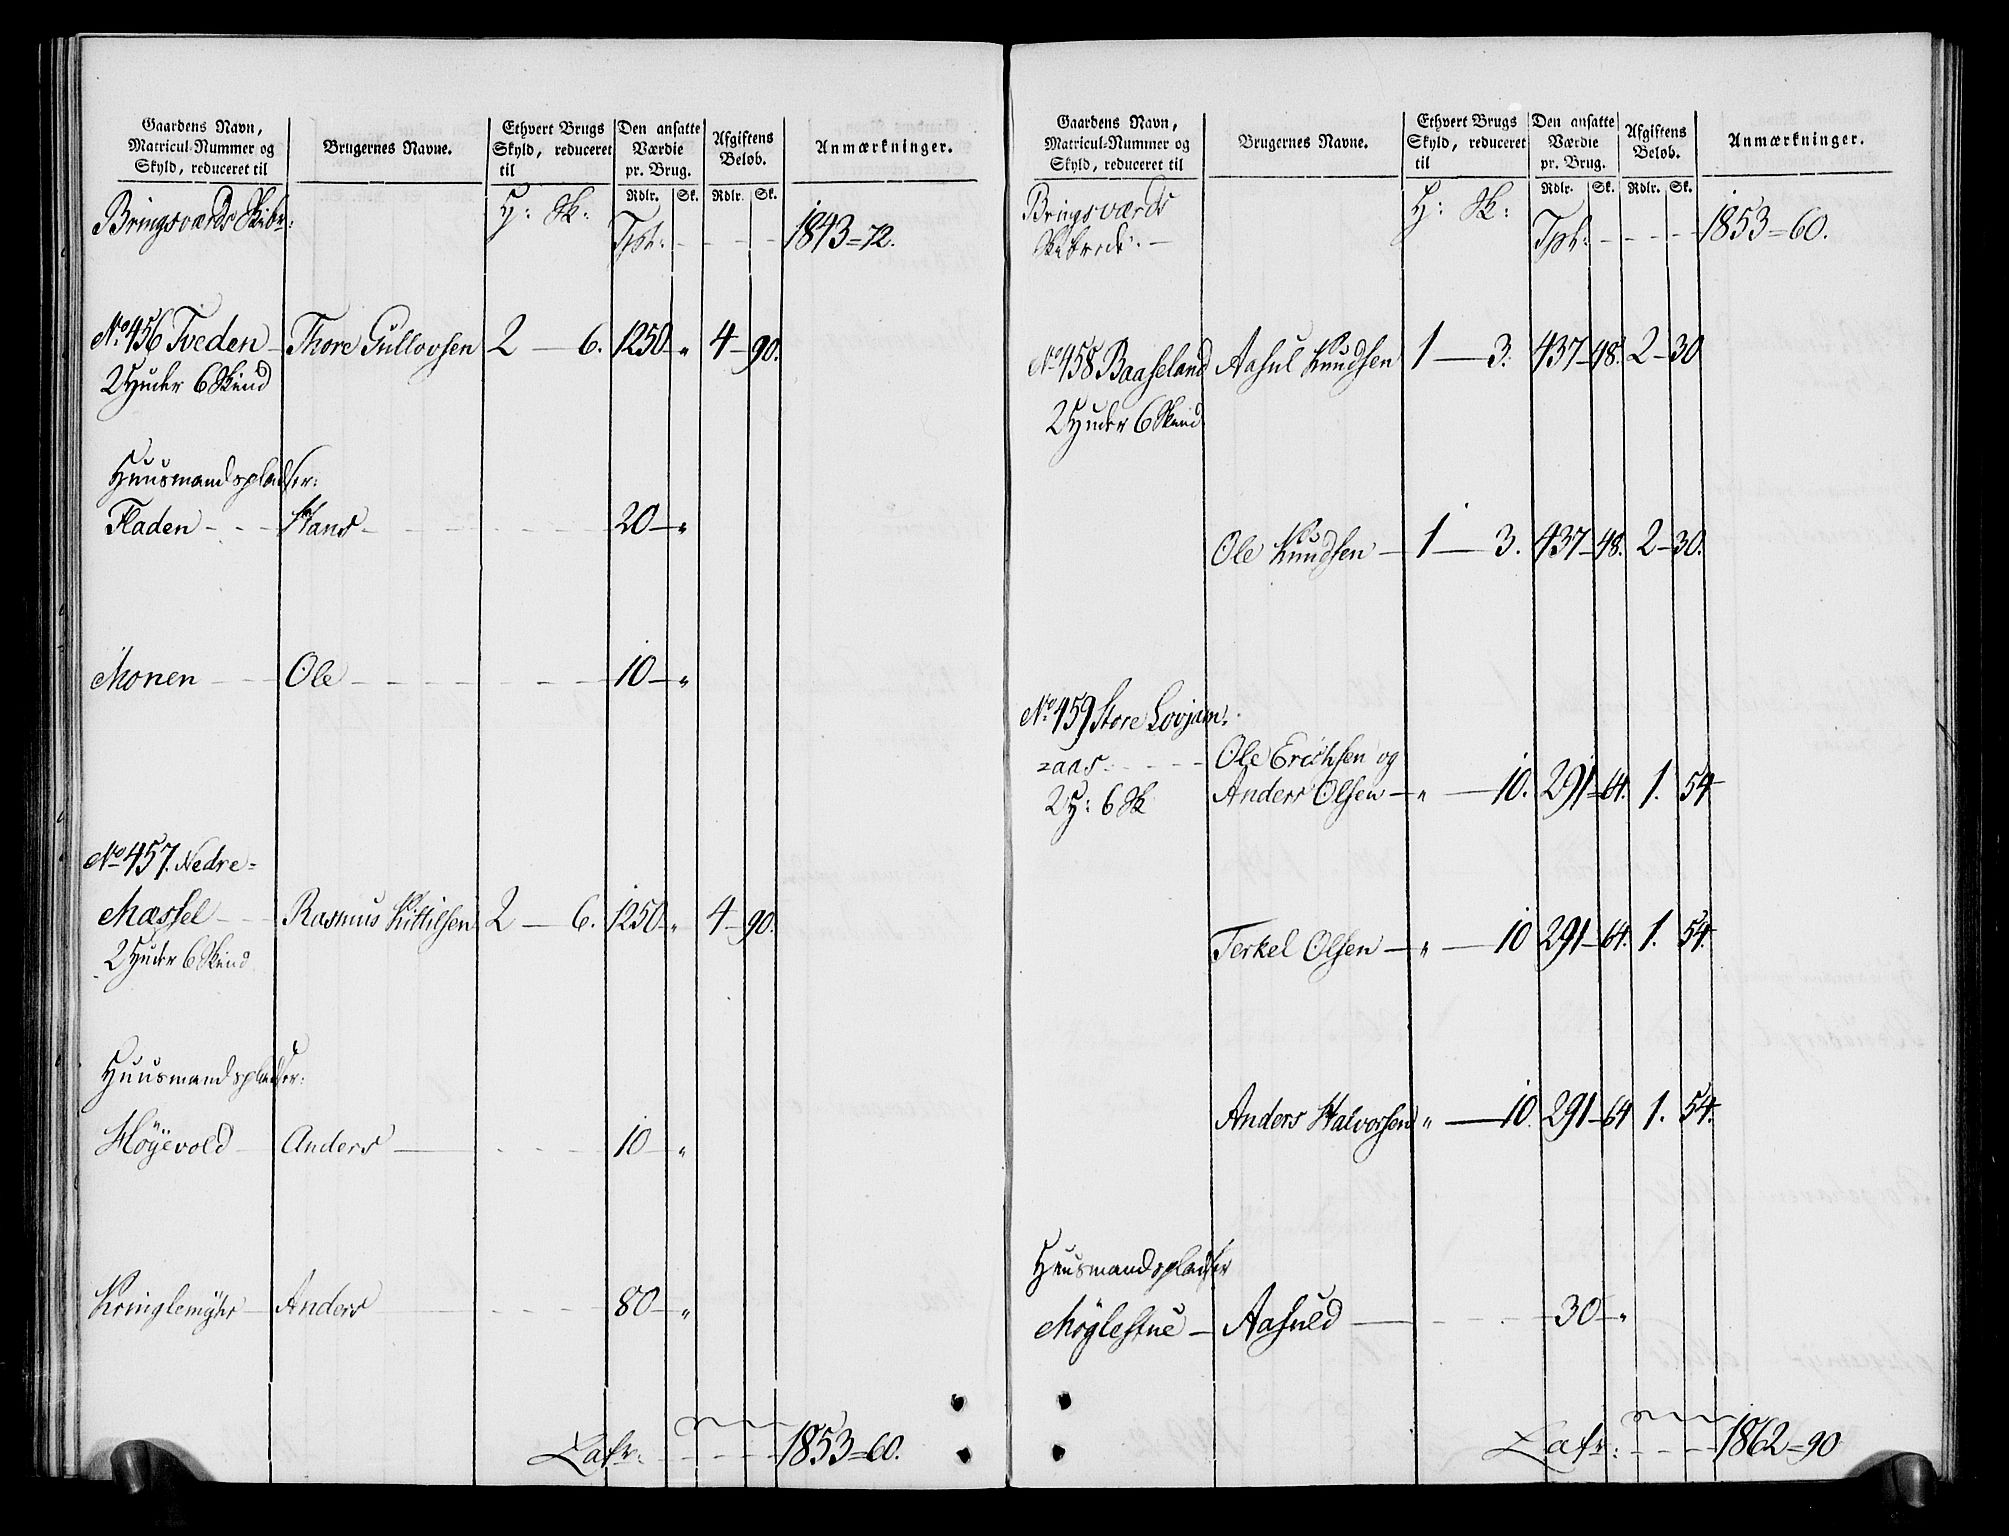 Gaardens Navn,
Matricul-Nummer og
Skyld, reduceret til
Brugernes Navne.
Ethvert Brugs
Skyld, reduceret
til
Den ansatte
Værdie
pr. Brug.
Rdlr. Sk.
Afgiftens
Beløb.
Rdlr. Sk.
Anmærkninger.
Bringsværds Skibr:
H: Sk:
Tpt: 1843=72.
No 456 Tveden Thore Gullovsen 2 6. 1250 " 4 90.
2 Huder 6 Skind
Huusmandspladser:
Fladen Hans 20 "
Monen Ole 10 "
No 457. Nedre=
Mæssel Rasmus Kittilsen 2 6. 1250 " 4 90.
2 Huder 6 Skind
Huusmandspladser:
Höyevold Anders 10 "
Kringlemyhr Anders 80 "
Latr: 1853=60.
Gaardens Navn,
Matricul-Nummer og
Skyld, reduceret til
Brugernes Navne.
Ethvert Brugs
Skyld, reduceret
til
Den ansatte
Værdie
pr. Brug.
Rdlr. Sk.
Afgiftens
Beløb.
Rdlr. Sk.
Anmærkninger.
Bringsværds
Skibrede.
H: Sk:
Tpt: 1853=60.
No 458 Baaseland Aasul Knudsen 1 3. 437 48. 2 30
2 Huder 6 Skind
Ole Knudsen 1 3. 437 48. 2 30.
No 459 Store Lovjam=
=aas Ole Erichsen og
2 H: 6 Sk Anders Olsen " 10. 291 64. 1. 54
Terkel Olsen " 10 291 64. 1. 54.
Anders Halvorsen " 10. 291 64 1. 54.
Huusmandspladser
Möglestue Aasuld 30 "
Latr: 1862=90